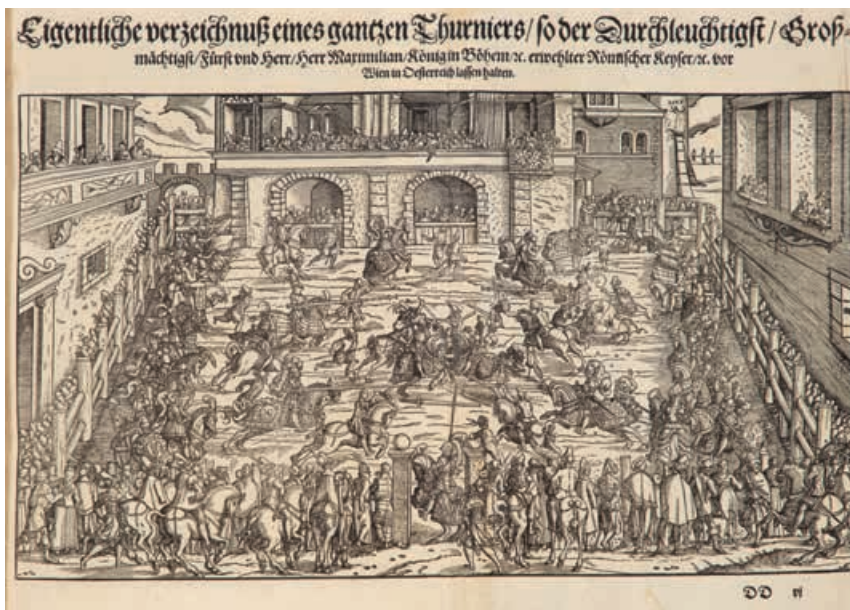 Eigentliche verzeichnuß eines gantzen Thurniers/ so der Durchleuchtigst/ Groß-
mächtigst/ Fürst vnd Herr/ Herr Maximilian/ König in Böhem/ ꝛc. erwehlter Römischer Keyser/ ꝛc. vor
Wien in Oesterreich lassen halten.
DD vj